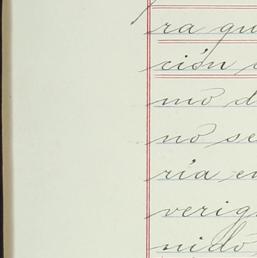 ra qu
ción
mo d
no se
ría en
verig
nidó